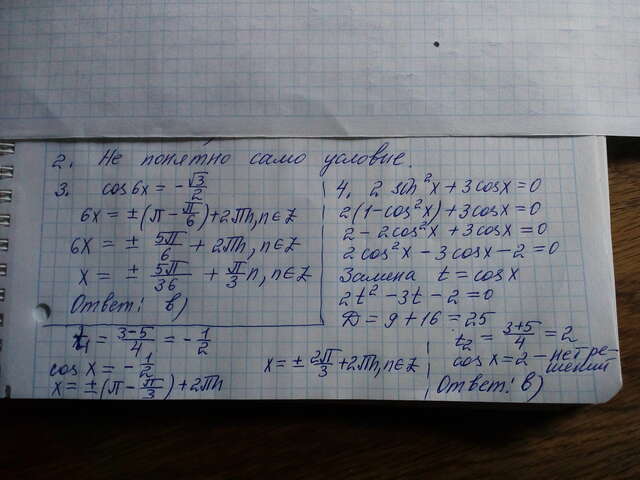 2. Не понятно само условие.
3. cos6x = -√3/2
6x = ±(π - π/6) + 2πn, n∈Z
6x = ± 5π/6 + 2πn, n∈Z
x = ± 5π/36 + π/3 n, n∈Z
Ответ: в)
4. 2 sin²x + 3cosx = 0
2(1-cos²x) + 3cosx = 0
2 - 2cos²x + 3cosx = 0
2cos²x - 3cosx - 2 = 0
Замена t = cosx
2t² - 3t - 2 = 0
D = 9 + 16 = 25
t₁ = (3-5)/4 = -1/2
cos x = -1/2
x = ±(π - π/3) + 2πn
x = ± 2π/3 + 2πn, n∈Z
t₂ = (3+5)/4 = 2
cosx = 2 - нет ре-
шений
Ответ: в)